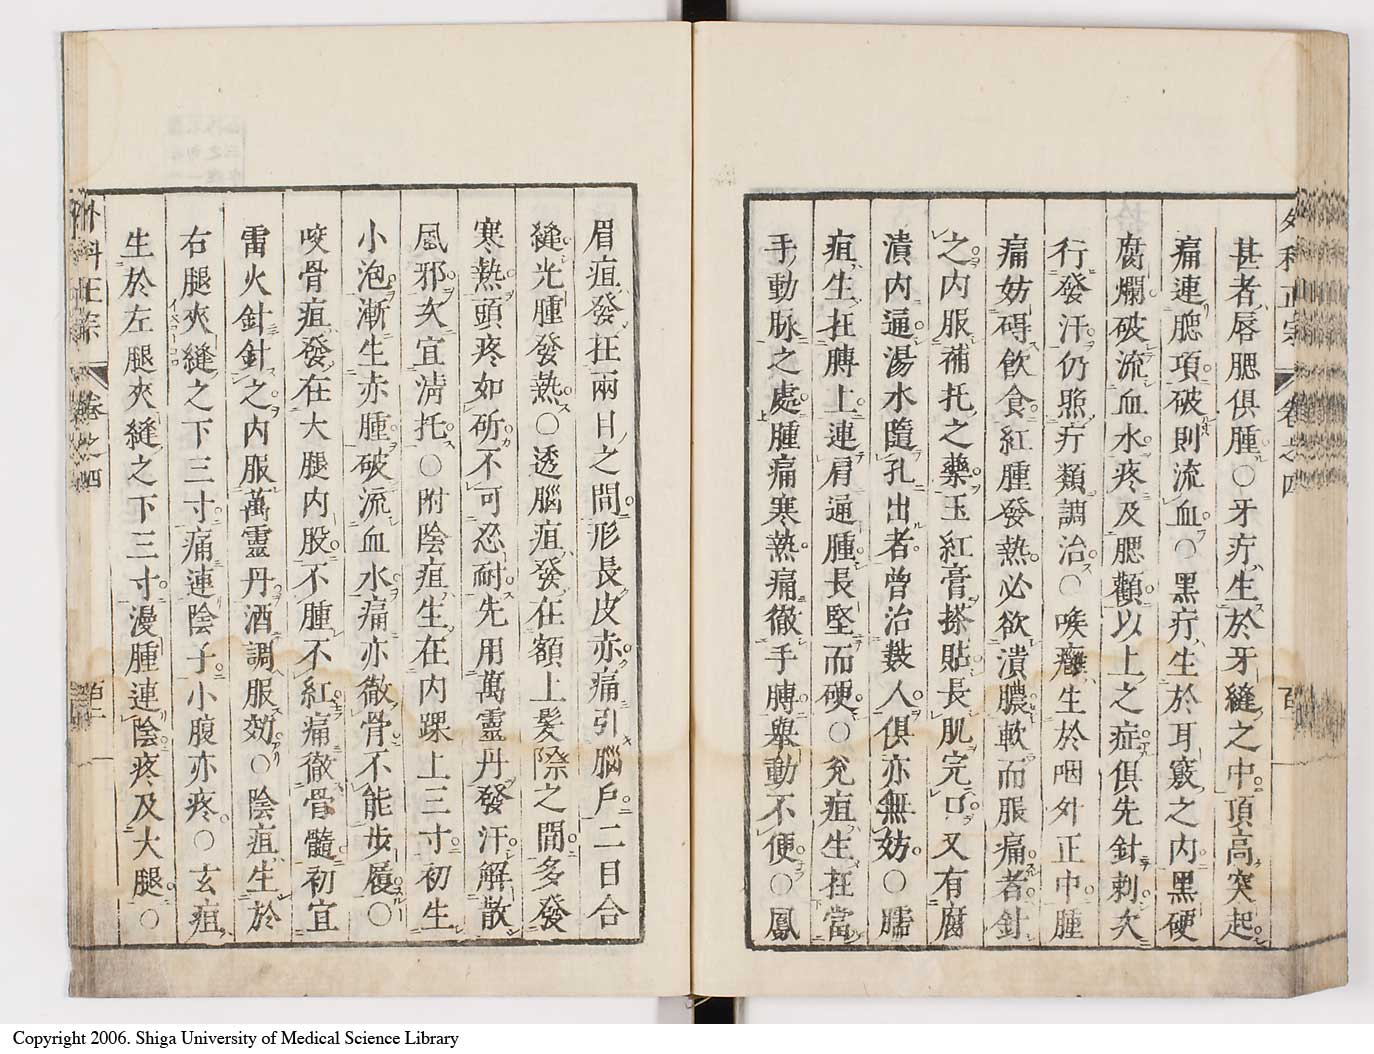 外科正宗 卷之四 百
甚者唇腮俱腫○牙疔生於牙縫之中頂高突起
痛連腮項破則流血○黑疔生於耳竅之內黑硬
腐爛破流血水疼及腮顴以上之症俱先針刺次
行發汗仍照疔類調治○喉癰生於咽外正中腫
痛妨碍飮食紅腫發熱必欲潰膿軟而脹痛者針
之內服補托之藥玉紅膏搽貼長肌完口又有腐
潰內逼湯水隨孔出者曾治數人俱亦無妨○臑
疽生在膊上連肩逼腫長堅而硬○兊疽生在當
手動脉之處腫痛寒熱痛徹手膊舉動不便○鳳
眉疽發在兩目之間形長皮赤痛引腦戶二目合
縫光腫發熱○透腦疽發在額上髮際之間多發
寒熱頭疼如斫不可忍耐先用萬靈丹發汗解散
風邪次宜淸托○附陰疽生在內踝上三寸初生
小泡漸生赤腫破流血水痛亦徹骨不能步履○
咬骨疽發在大腿內股不腫不紅痛徹骨髓初宜
雷火針針之內服萬靈丹酒調服效○陰疽生於
右腿夾縫之下三寸痛連陰子小腹亦疼○玄疽
生於左腿夾縫之下三寸漫腫連陰疼及大腿○
外科正宗 卷之四 百一
Copyright 2006. Shiga University of Medical Science Library